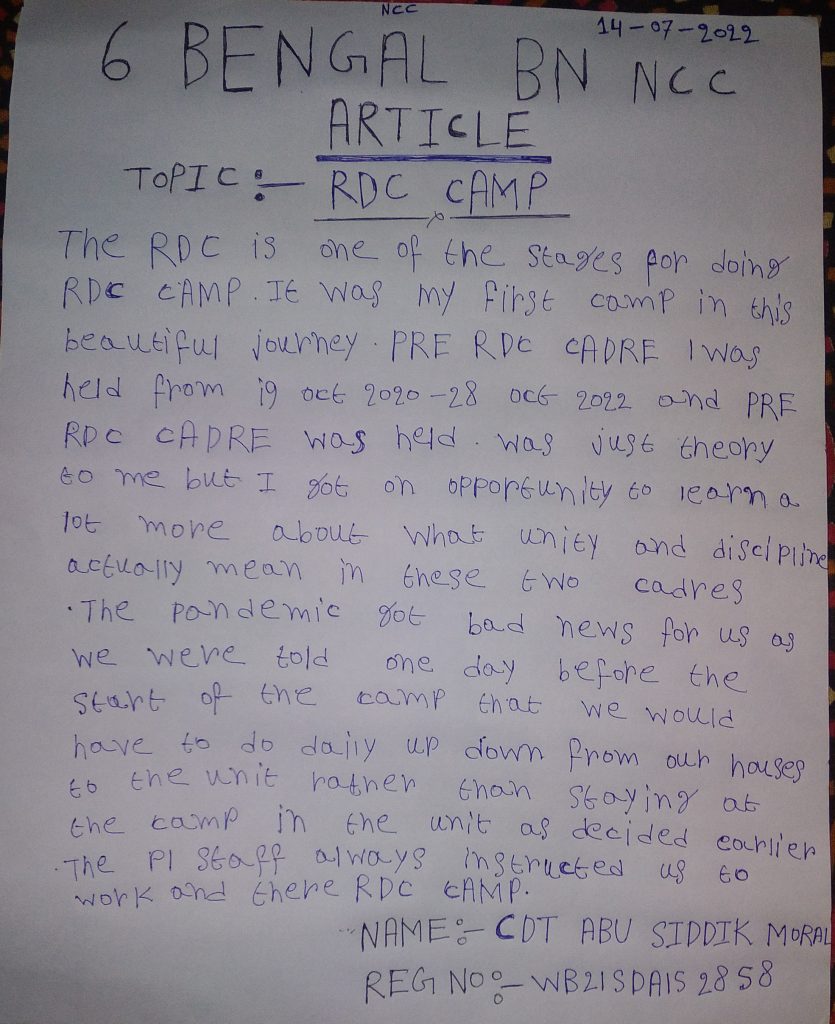 NCC
14-07-2022
6 BENGAL BN NCC
ARTICLE
TOPIC:- RDC CAMP
The RDC is one of the stages for doing
RDC CAMP. It was my first camp in this
beautiful journey. PRE RDC CADRE I was
held from 19 oct 2020-28 oct 2022 and PRE
RDC CADRE was held. was just theory
to me but I got on opportunity to learn a
lot more about what unity and discipline
actually mean in these two cadres
. The pandemic got bad news for us as
we were told one day before the
start of the camp that we would
have to do daily up down from our houses
to the unit rather than staying at
the camp in the unit as decided earlier
. The PI Staff always instructed us to
work and there RDC CAMP.
NAME:- CDT ABU SIDDIK MORAL
REG NO:- WB21SDA152858